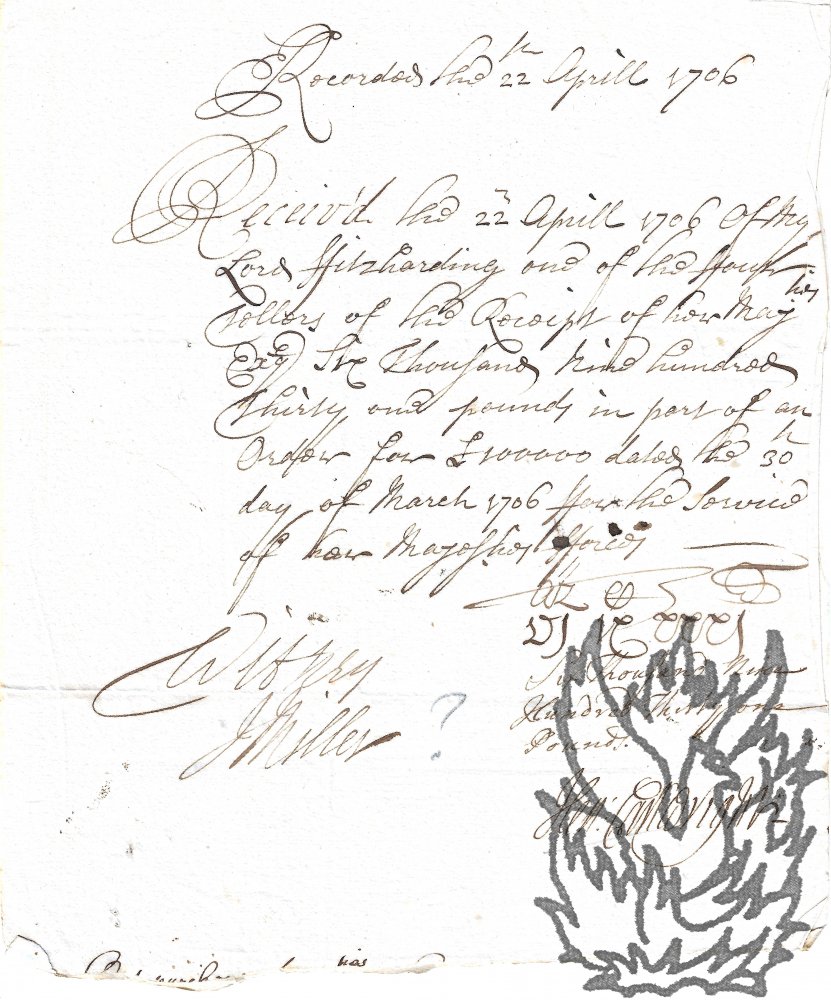 Recorded the 22th Aprill 1706
Receiv'd the 22th Aprill 1706 Of My
Lord Fitzharding one of the ffour
Tellers of the Receipt of her Majties
Exqr Six Thousand Nine hundred
Thirty one pounds in part of an
Order for £100000 dated the 30th
day of March 1706 ffor the Service
of her Majesties fforces
VI IX XXXI
Six Thousand Nine
Hundred Thirty one
Pounds
Wittness
J Miller ?